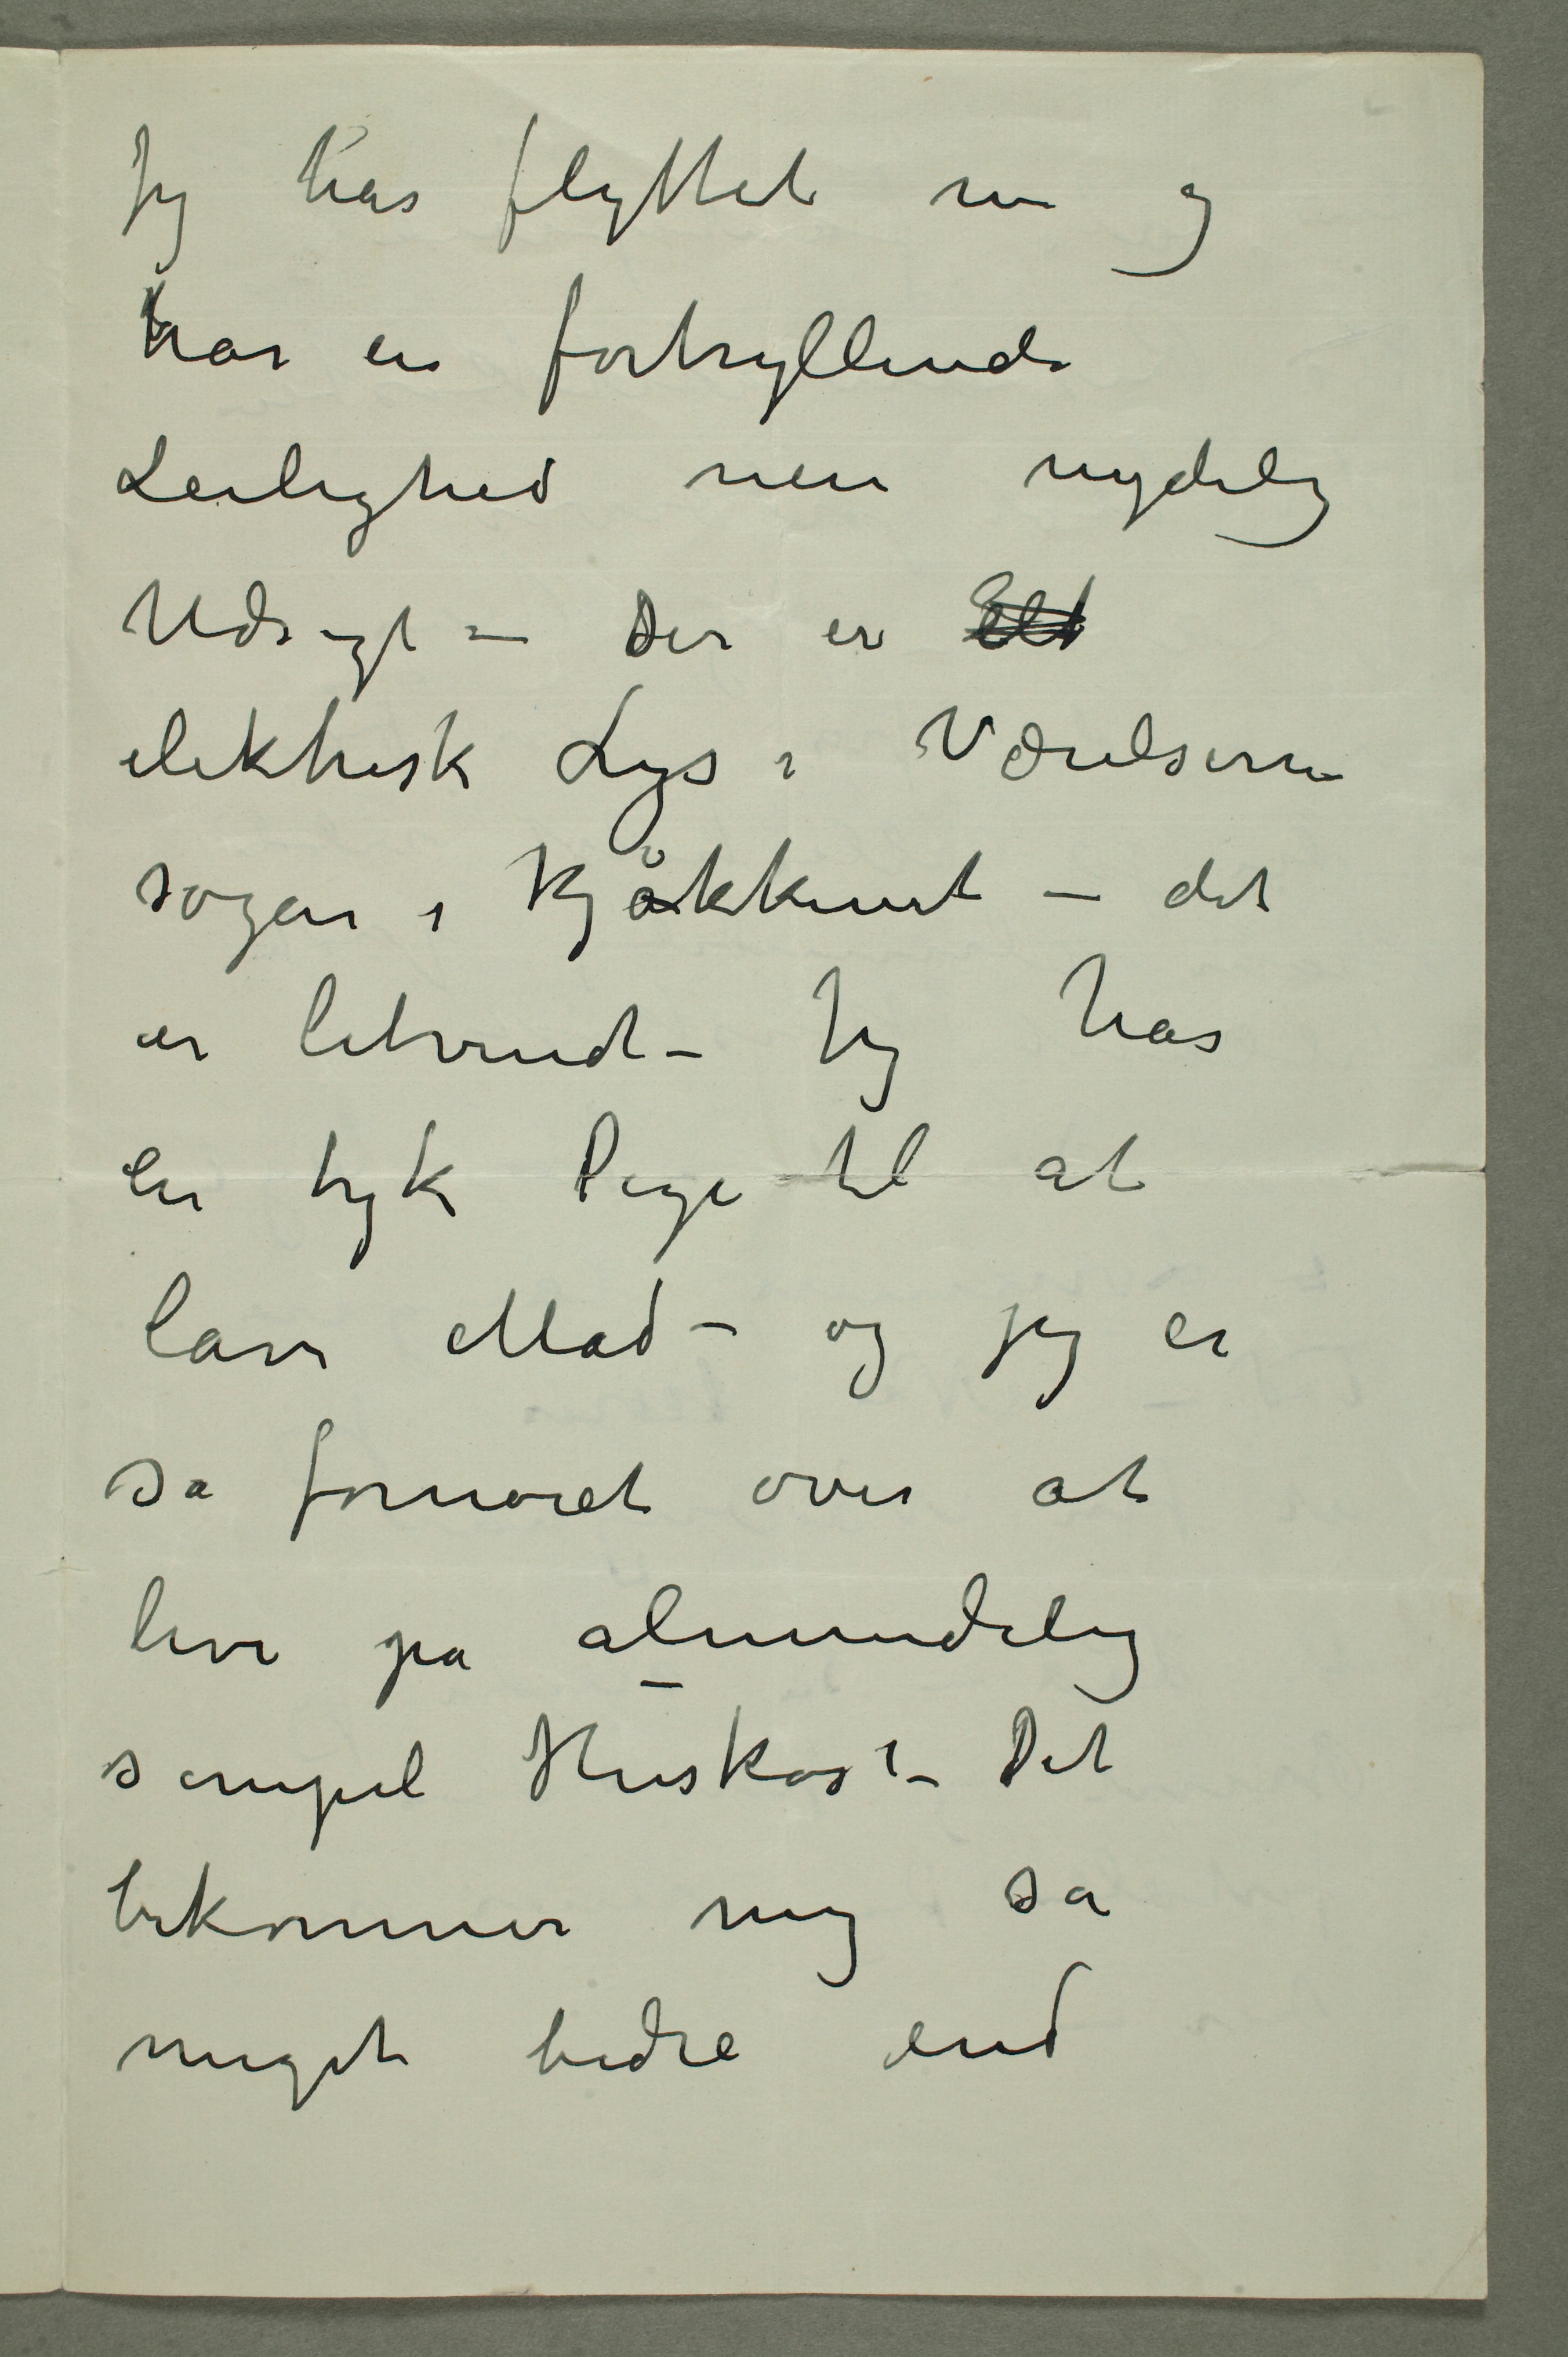 Jeg har flyttet nu og
har en fortryllende
Leilighed men nydelig
Udsigt – Der er
elektrisk Lys i Værelserne
sogar i Kjøkkenet – det
er letvindt – Jeg har
en tyk Pige til at
lave Mad – og jeg er
så fornøiet over at
leve på almindelig
simpel Huskost – Det
bekommer mig så
meget bedre end